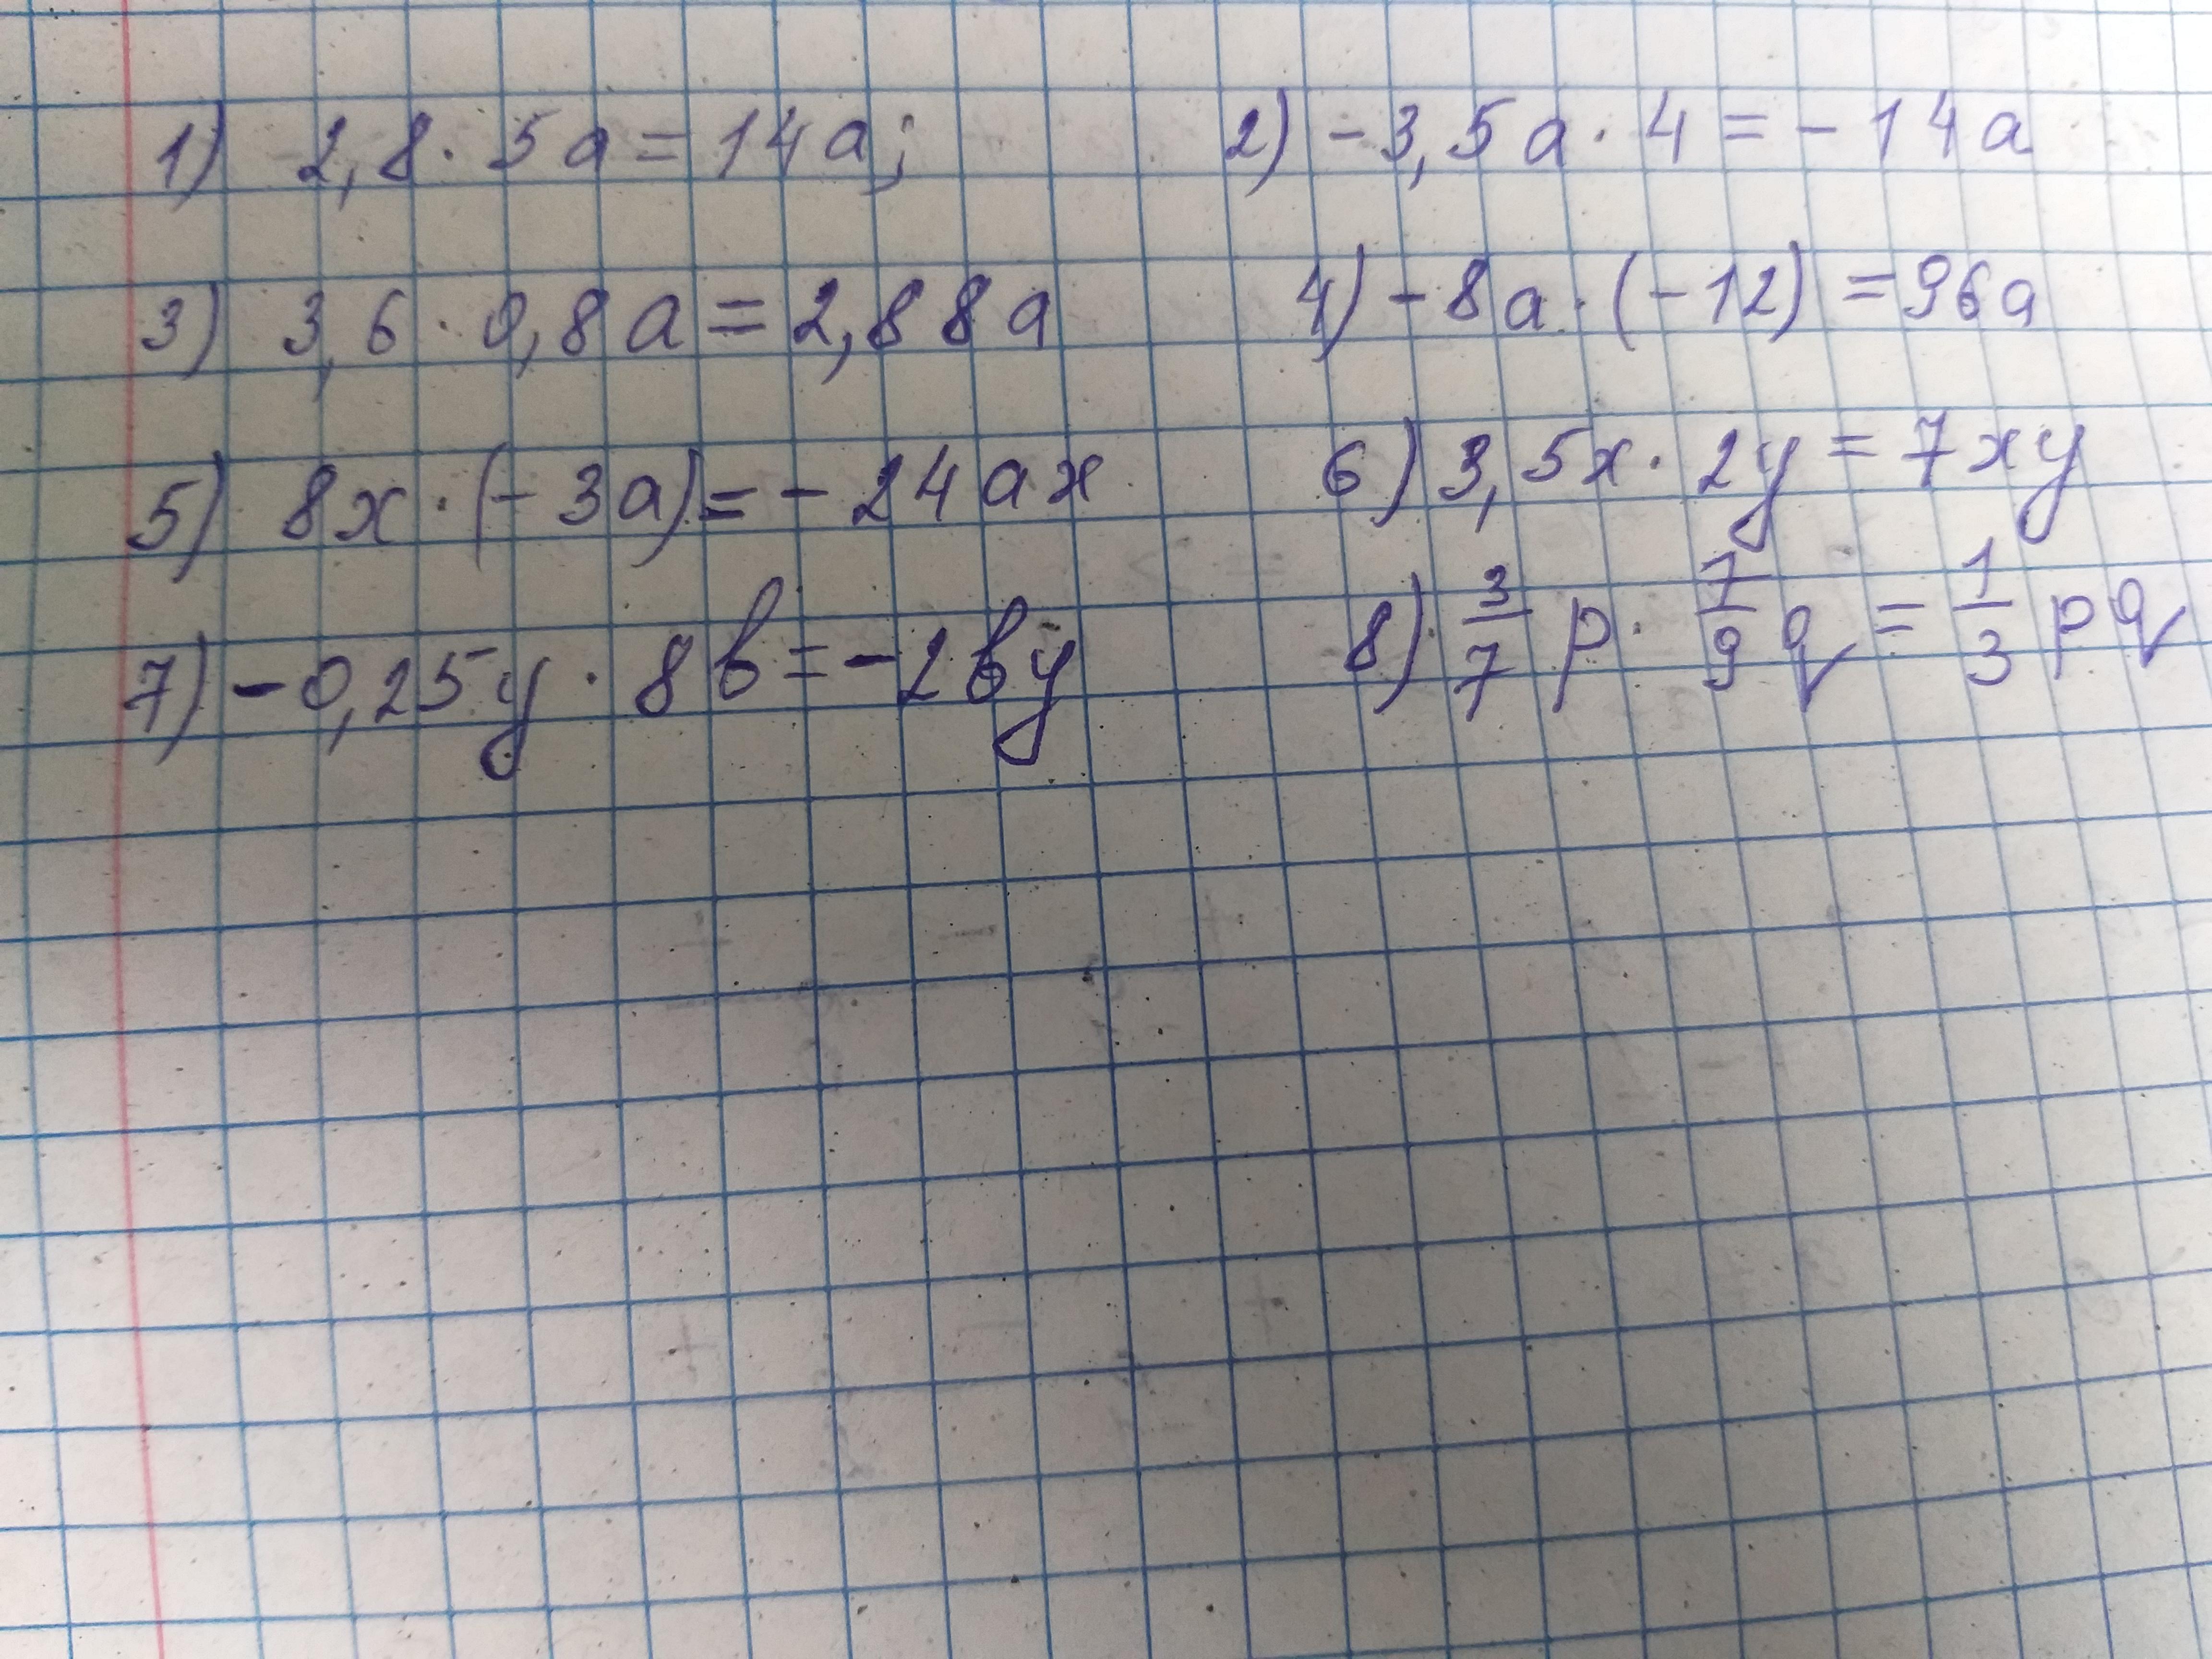 1) 2,8 · 5a = 14a; 2) -3,5a · 4 = -14a
3) 3,6 · 0,8a = 2,88a 4) -8a · (-12) = 96a
5) 8x · (-3a) = -24ax 6) 3,5x · 2y = 7xy
7) -0,25y · 8b = -2by 8) 3/7 p · 7/9 q = 1/3 pq